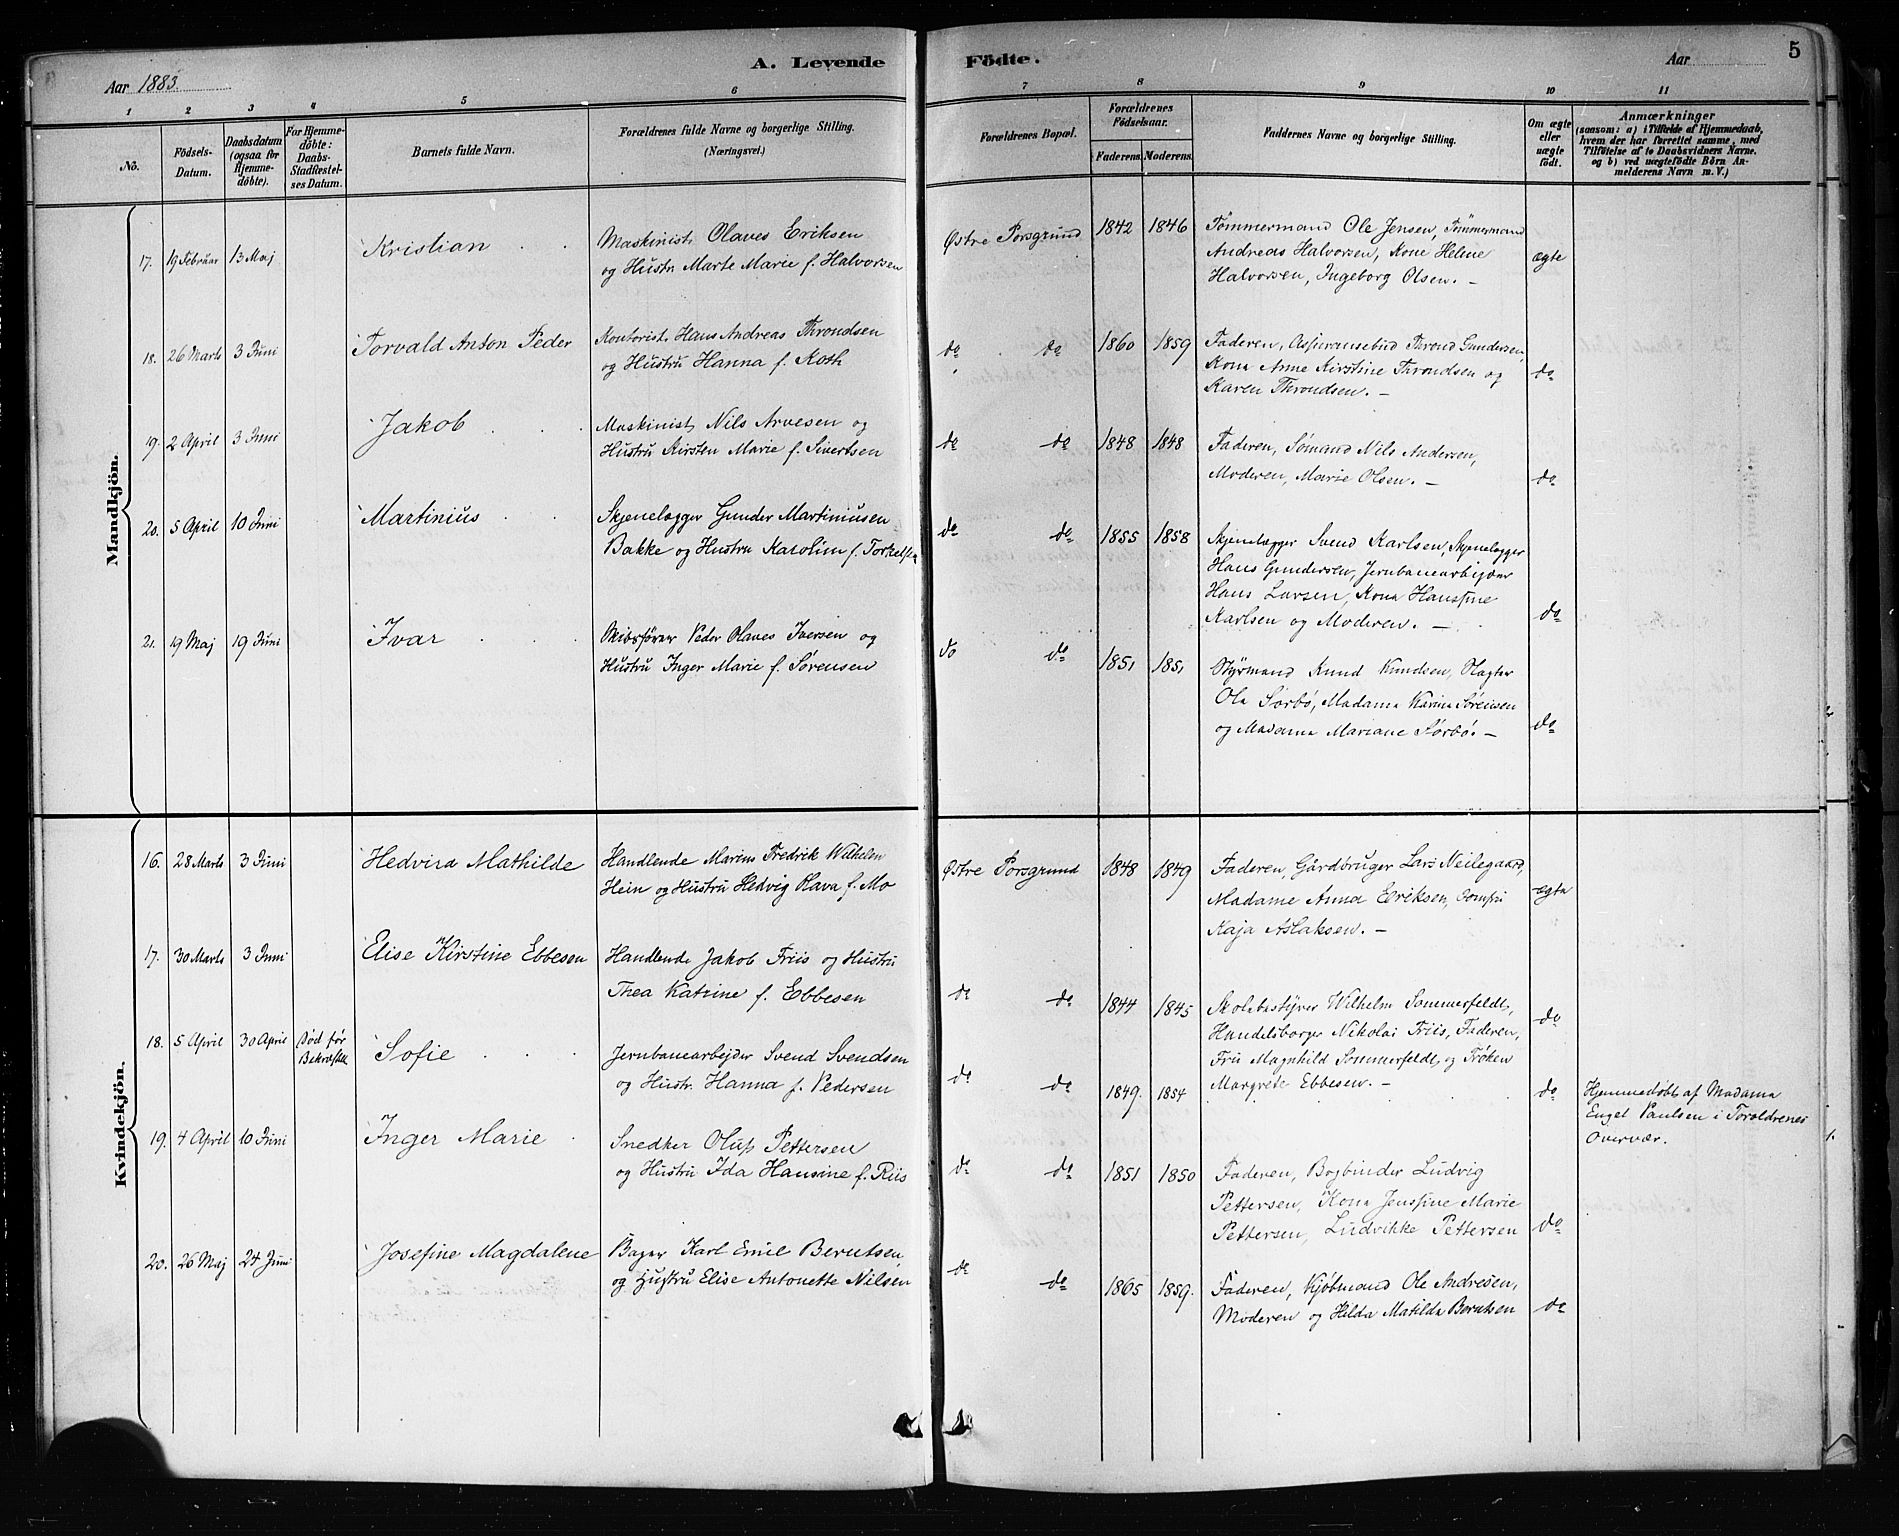 A. Levende Födte.
5
Aar 1883.
Aar
1 2 3 4 5 6 7 8 9 10 11
No.
Födsels-Datum.
Daabsdatum (ogsaa for Hjemmedöbte).
For Hjemmedöbte: Daabs-Stadfæstelses Datum.
Barnets fulde Navn.
Forældrenes fulde Navne og borgerlige Stilling.
(Næringsvei.)
Forældrenes Bopæl.
Forældrenes Födselsaar.
Faderens. Moderens.
Faddernes Navne og borgerlige Stilling.
Om ægte eller uægte födt.
Anmærkninger
(saasom: a) i Tilfælde af Hjemmedaab,
hvem der har forrettet samme, med
Tilföielse af to Daabsvidners Navne,
og b) ved uægtefödte Börn Anmelderens Navn m. V.)
Mandkjön.
17. 19 Februar 13 Maj Kristian
Maskinist Olaves Eriksen
og Hustr Marte Marie f. Halvorsen
Østre Porsgrund 1842 1846
Tømmermand Ole Jensen, Tømmermand
Andreas Halvorsen, Kone Helene
Halvorsen, Ingeborg Olsen. –
ægte
18. 26 Marts 3 Juni Torvald Anton Peder
Kontorist Hans Andreas Throndsen
og Hustru Hanna f. Roth
do do 1860 1859
Faderen, Assuransebud Thrond Gundersen,
Kona Anne Kirstine Throndsen og
Karen Throndsen. –
do
19. 2 April 3 Juni Jakob
Maskinist Nils Arvesen og
Hustru Kirsten Marie f. Sivertsen
do do 1848 1848
Faderen, Sømand Nils Andersen,
Moderen, Marie Olsen. –
do
20. 5 April 10 Juni Martinius
Skjenelægger Gunder Martiniusen
Bakke og Hustru Karolin f. Torkelsen
do do 1855 1858
Skjenelægger Svend Karlsen, Skjenelægger
Hans Gundersen, Jernbanearbejder
Hans Larsen, Kona Hansine
Karlsen og Moderen. –
do
21. 19 Maj 19 Juni Ivar
Skibsfører Peder Olaves Iversen og
Hustru Inger Marie f. Sørensen
do do 1851 1851
Styrmand Knud Knudsen, Slagter
Ola Sørbø, Madama Karina Sørensen
og Madama Mariane Sørbø. –
do
Kvindekjön.
16. 28 Marts 3 Juni Hedvira Mathilde
Handlende Marius Fredrik Wilhelm
Hein og Hustru Hedvig Olava f. Mo
Østre Porsgrund 1848 1849
Faderen, Gårdbruger Lars Neilegaard,
Madame Anna Eriksen, Jomfru
Kaja Aslaksen. –
ægte
17. 30 Marts 3 Juni Elise Kirstine Ebbesen
Handlende Jakob Friis og Hustru
Thea Katrine f. Ebbesen
do do 1844 1845
Skolebestyrer Wilhelm Sommerfeldt,
Handelsborger Nikolai Friis, Faderen,
Fru Magnhild Sommerfeldt, og Frøken
Margrete Ebbesen. –
do
18. 5 April 30 April Død før Bekræftelse Sofie
Jernbanearbejder Svend Svendsen
og Hustr. Hanna f. Pedersen
do do 1849. 1854
do
Hjemmedøbt af Madama
Engel Paulsen i Foreldrenes
Overvær.
19. 4 April 10 Juni Inger Marie
Snedker Oluf Pettersen
og Hustru Ida Hansine f. Riis
do do 1851 1850
Faderen, Bogbinder Ludvig
Pettersen, Kona Jensine Marie
Pettersen, Ludvikke Pettersen
do
20. 26 Maj 24 Juni Josefine Magdalene
Bager Karl Emil Berntsen
og Hustru Elise Antonette Nilsen
do do 1865 1859.
Faderen, Kjøbmand Ole Andresen,
Moderen og Hilda Matilda Berntsen
do